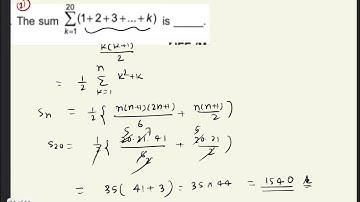 21
The sum $\sum_{k=1}^{20} (1+2+3+...+k)$ is ____.
$\frac{k(k+1)}{2}$
$= \frac{1}{2} \sum_{k=1}^{n} k^2+k$
$S_n = \frac{1}{2} \left\{ \frac{n(n+1)(2n+1)}{6} + \frac{n(n+1)}{2} \right\}$
$S_{20} = \frac{1}{2} \left\{ \frac{20 \cdot 21 \cdot 41}{6} + \frac{20 \cdot 21}{2} \right\}$
$= 35(41+3) = 35 \times 44 = 1540$